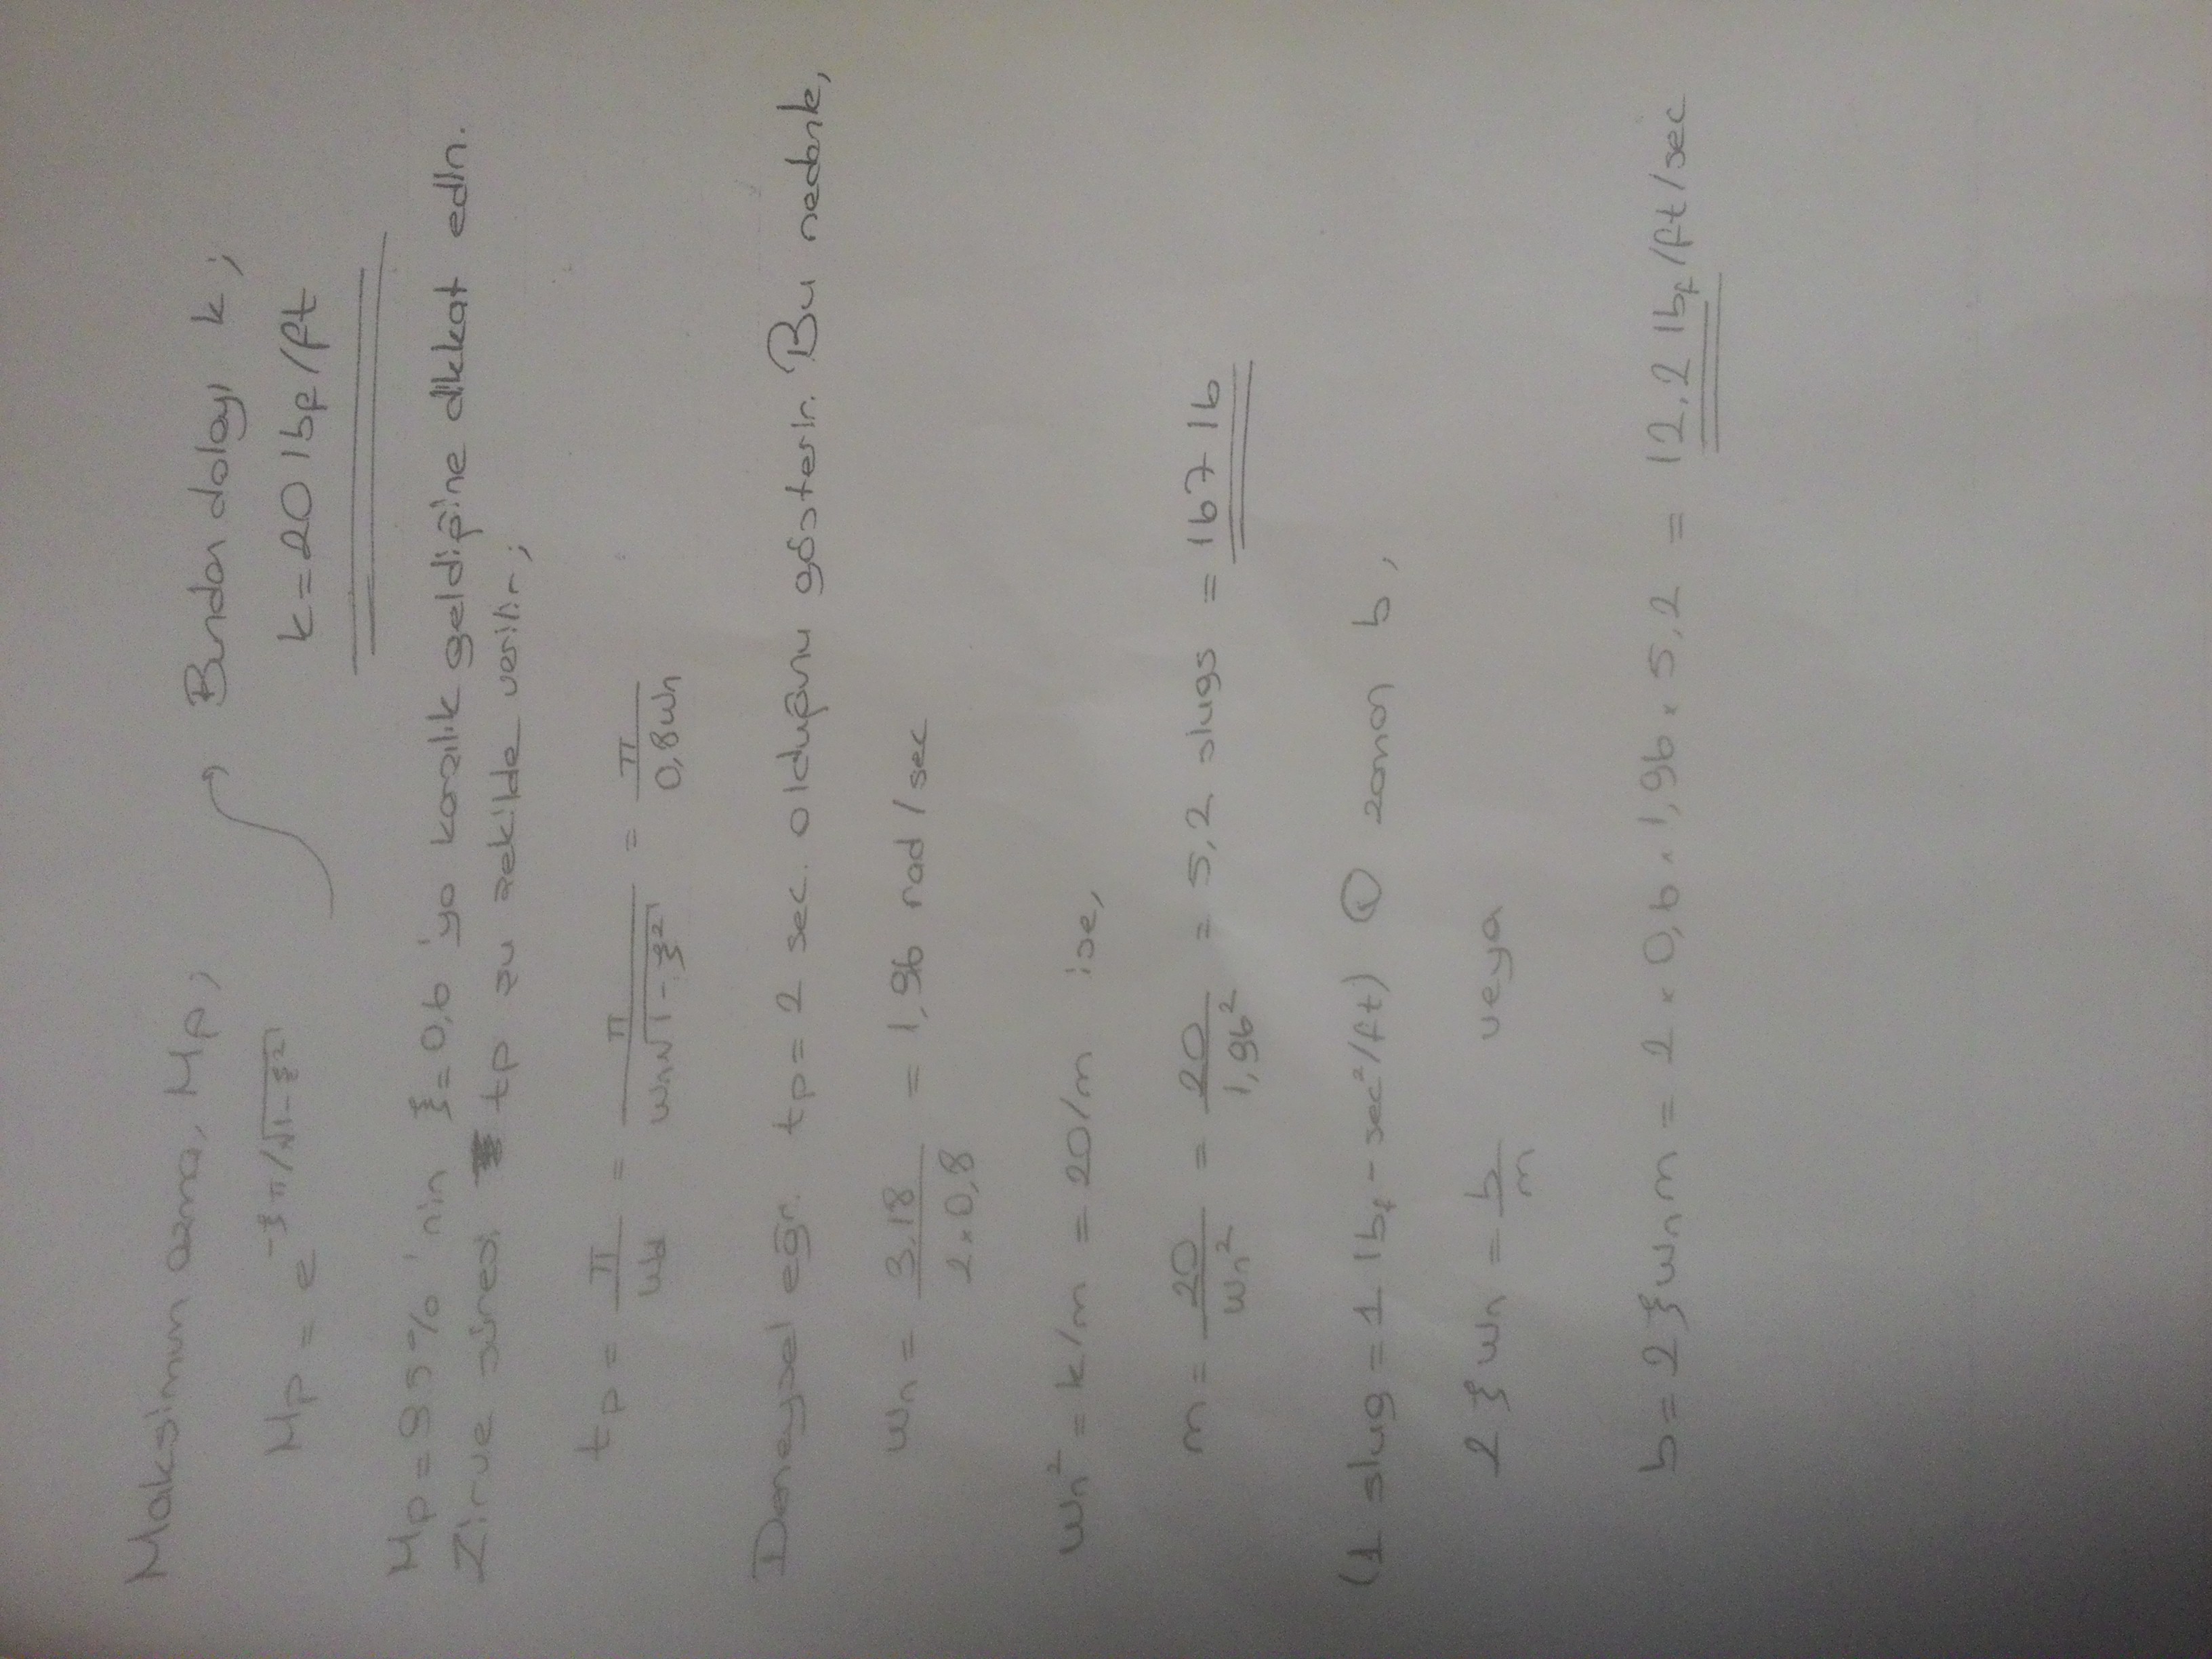 Maksimum aşma, Mp;
Mp = e^-ξπ/√1-ξ²
Bundan dolayı k;
k=20 lbf/ft
Mp = 9.5% 'nin ξ=0,6 'ya karşılık geldiğine dikkat edin.
Zirve süresi tp şu şekilde verilir;
tp = π/wd = π/wn√1-ξ² = π/0,8wn
Deneysel eğri tp = 2 sec. olduğunu gösterir. Bu nedenle,
wn = 3.18/2×0,8 = 1,96 rad/sec
wn² = k/m = 20/m ise,
m = 20/wn² = 20/1,96² = 5,2 slugs = 167 lb
(1 slug = 1 lbf-sec²/ft) O zaman b,
2ξwn = b/m veya
b = 2ξwnm = 2×0,6×1,96×5,2 = 12.2 lbf/ft/sec